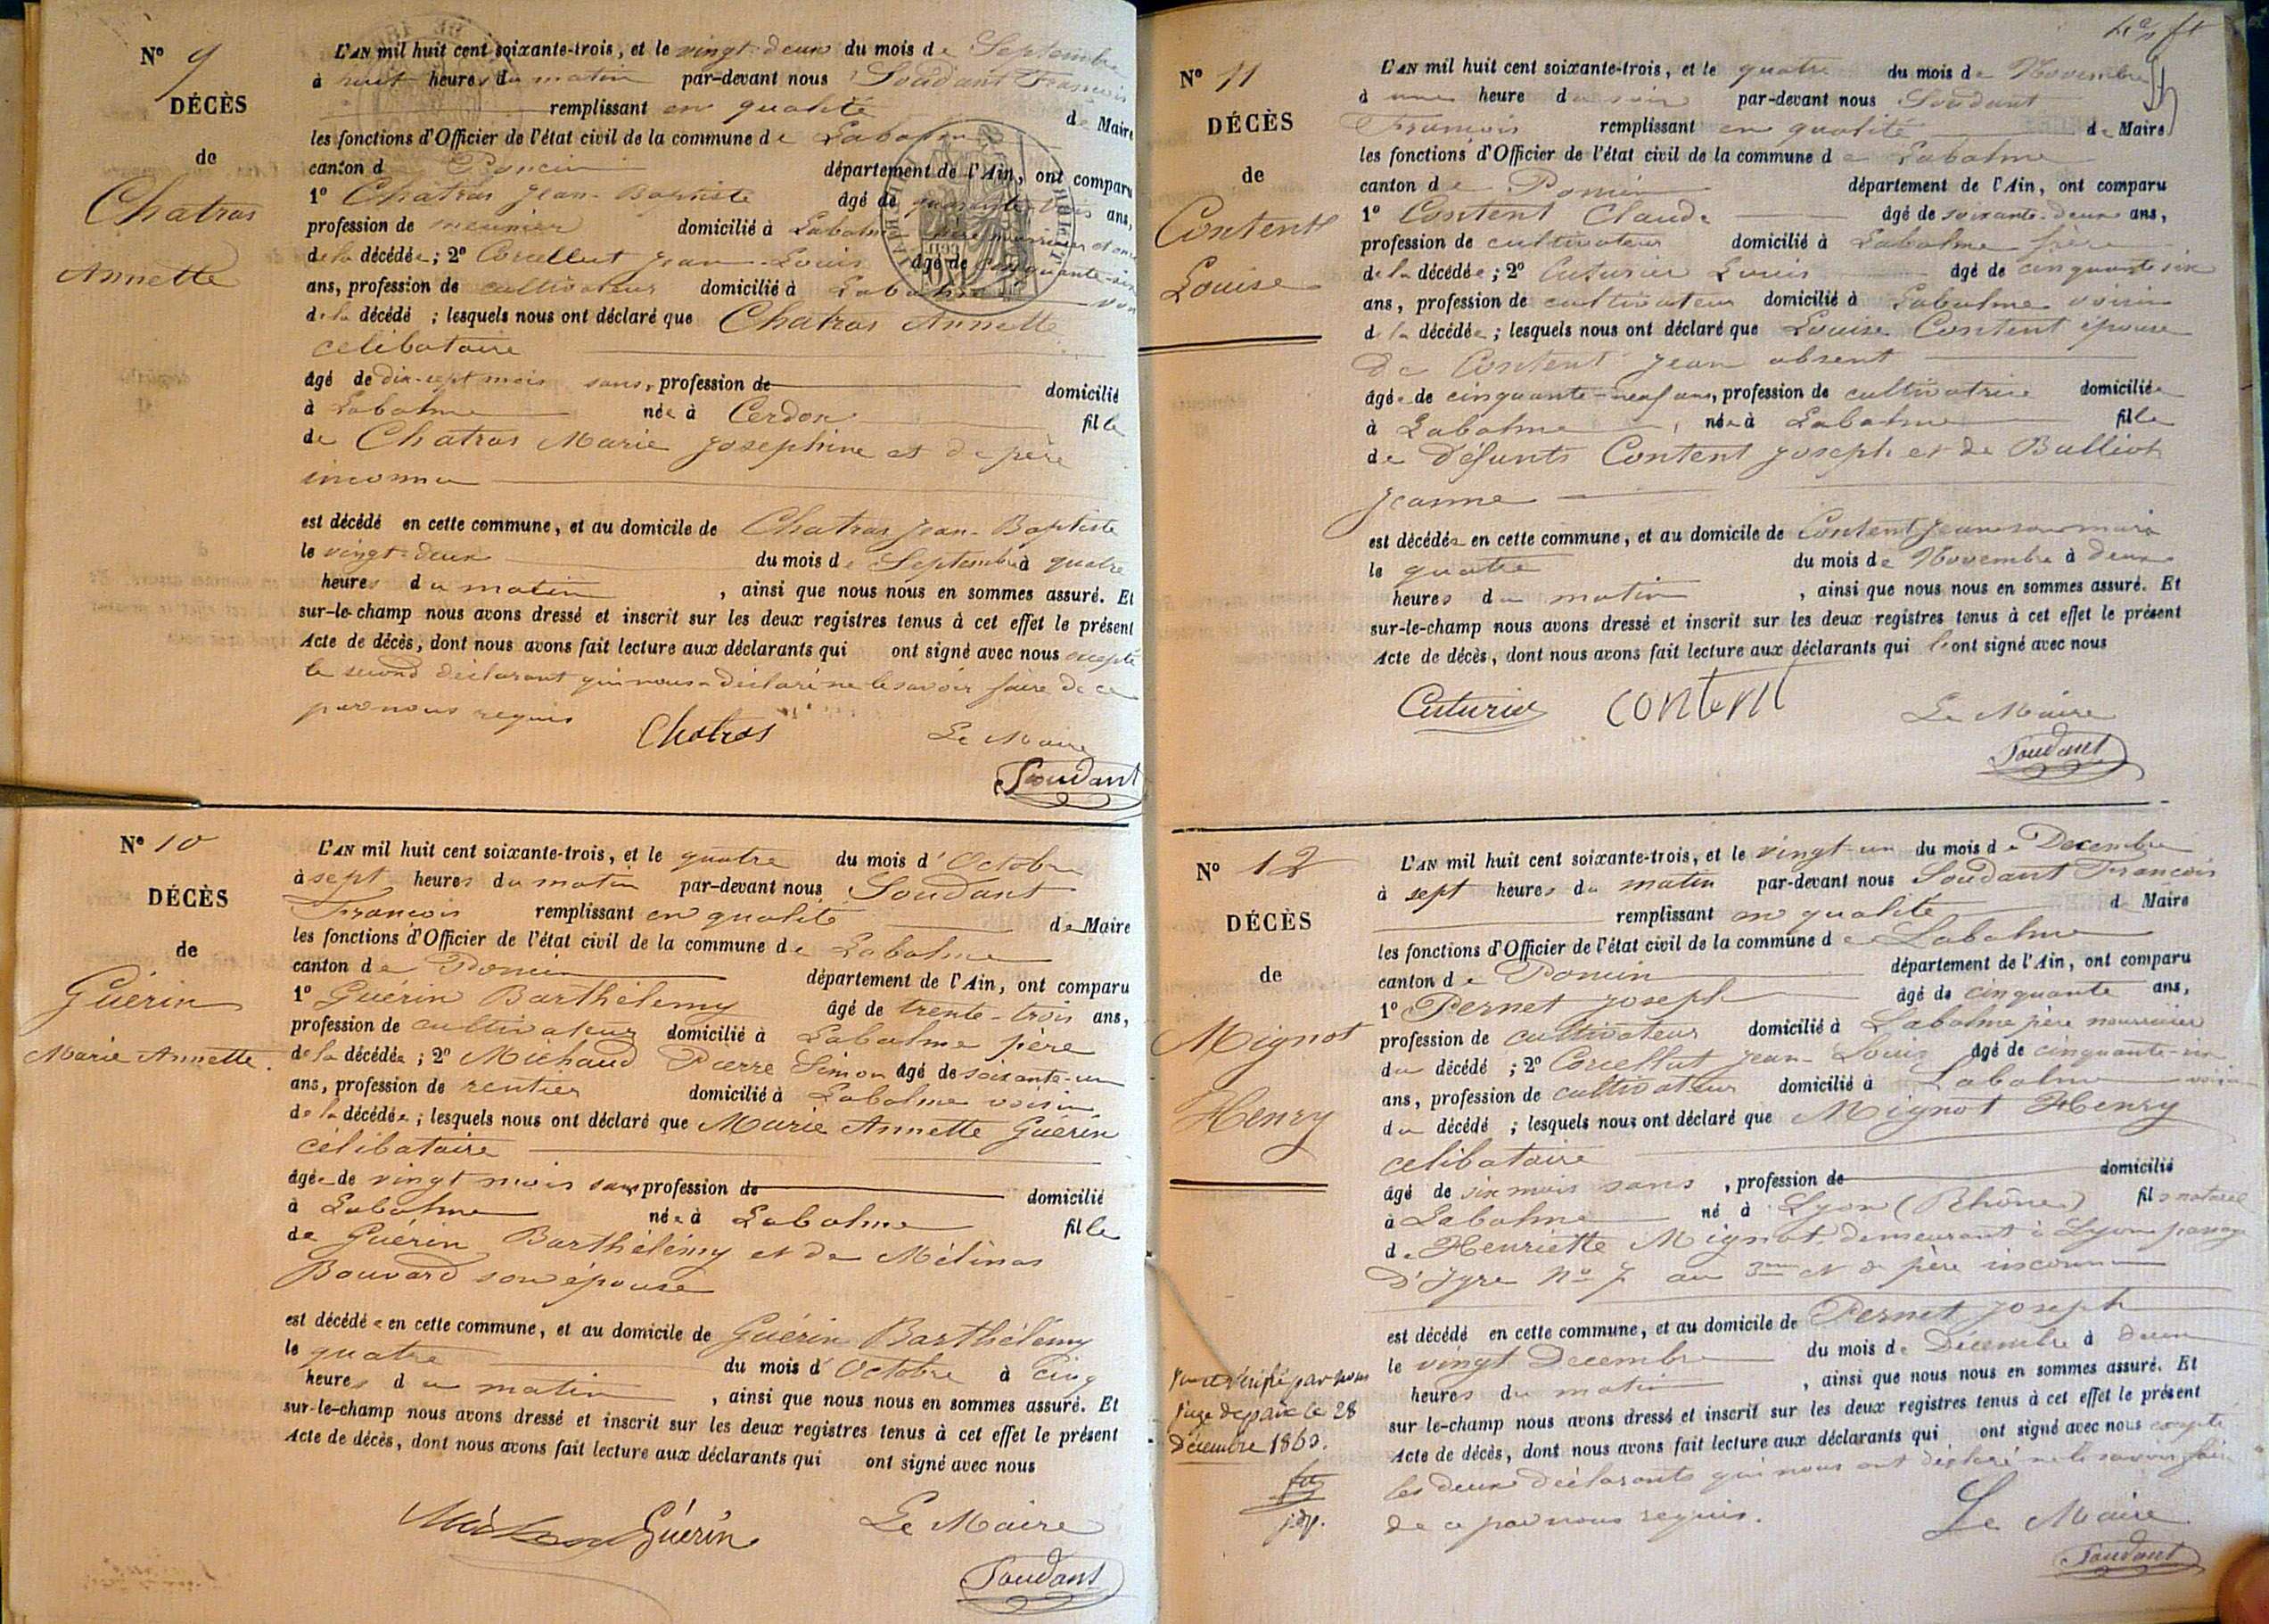 Nº 9
DÉCÈS
de
Chatras
Annette
L'AN mil huit cent soixante-trois, et le vingt-deux du mois de Septembre
à huit heures du matin par-devant nous Soudant François
remplissant en qualité de Maire
les fonctions d'Officier de l'état civil de la commune de Labalme
canton d Poncin département de l'Ain, ont comparu
1º Chatras Jean-Baptiste âgé de quarante-trois ans,
profession de meunier domicilié à Labalme père nourricier et oncle
de la décédée; 2º Corcellut Jean-Louis âgé de cinquante-six
ans, profession de cultivateur domicilié à Labalme voisin
de la décédé ; lesquels nous ont déclaré que Chatras Annette
celibataire
âgé de dix-sept mois sans, profession de domicilié
à Labalme née à Cerdon fille
de Chatras Marie Josephine et de père
inconnu
est décédé en cette commune, et au domicile de Chatras Jean-Baptiste
le vingt-deux du mois de Septembre à quatre
heures du matin , ainsi que nous nous en sommes assuré. Et
sur-le-champ nous avons dressé et inscrit sur les deux registres tenus à cet effet le présent
Acte de décès, dont nous avons fait lecture aux déclarants qui ont signé avec nous excepté
le second déclarant qui nous a déclaré ne le savoir faire de ce
par nous requis
Chatras Le Maire
Soudant
Nº 10
DÉCÈS
de
Guérin
Marie Annette.
L'AN mil huit cent soixante-trois, et le quatre du mois d'Octobre
à sept heures du matin par-devant nous Soudant
François remplissant en qualité de Maire
les fonctions d'Officier de l'état civil de la commune de Labalme
canton de Poncin département de l'Ain, ont comparu
1º Guérin Barthélemy âgé de trente-trois ans,
profession de cultivateur domicilié à Labalme père
de la décédée ; 2º Michaud Pierre Simon âgé de soixante-un
ans, profession de rentier domicilié à Labalme voisin
de la décédée ; lesquels nous ont déclaré que Marie Annette Guérin
célibataire
âgée de vingt mois sans profession de domicilié
à Labalme née à Labalme fille
de Guérin Barthélémy et de Mélinas
Bouvard son épouse
est décédée en cette commune, et au domicile de Guérin Barthélémy
le quatre du mois d'Octobre à Cinq
heures du matin , ainsi que nous nous en sommes assuré. Et
sur-le-champ nous avons dressé et inscrit sur les deux registres tenus à cet effet le présent
Acte de décès, dont nous avons fait lecture aux déclarants qui ont signé avec nous
Guérin Le Maire
Soudant
Nº 11
DÉCÈS
de
Content
Louise
L'AN mil huit cent soixante-trois, et le quatre du mois de Novembre
à une heure du soir par-devant nous Soudant
François remplissant en qualité de Maire
les fonctions d'Officier de l'état civil de la commune de Labalme
canton de Poncin département de l'Ain, ont comparu
1º Content Claude âgé de soixante-deux ans,
profession de cultivateur domicilié à Labalme frère
de la décédée ; 2º Cuturier Louis âgé de cinquante six
ans, profession de cultivateur domicilié à Labalme voisin
de la décédée ; lesquels nous ont déclaré que Louise Content épouse
De Content Jean absent
âgée de cinquante-neuf ans, profession de cultivatrice domiciliée
à Labalme , née à Labalme fille
de défunts Content Joseph et de Bulliot
Jeanne
est décédée en cette commune, et au domicile de Content Jean son mari
le quatre du mois de Novembre à deux
heures du matin , ainsi que nous nous en sommes assuré. Et
sur-le-champ nous avons dressé et inscrit sur les deux registres tenus à cet effet le présent
Acte de décès, dont nous avons fait lecture aux déclarants qui l'ont signé avec nous
Cuturier content Le Maire
Soudant
Nº 12
DÉCÈS
de
Mignot
Henry
L'AN mil huit cent soixante-trois, et le vingt-un du mois de Decembre
à sept heures du matin par-devant nous Soudant François
remplissant en qualité d Maire
les fonctions d'Officier de l'état civil de la commune de Labalme
canton de Poncin département de l'Ain, ont comparu
1º Pernet Joseph âgé de cinquante ans,
profession de cultivateur domicilié à Labalme père nourricier
du décédé ; 2º Corcellut Jean-Louis âgé de cinquante-six
ans, profession de cultivateur domicilié à Labalme voisin
du décédé ; lesquels nous ont déclaré que Mignot Henry
celibataire
âgé de six mois sans , profession de domicilié
à Labalme né à Lyon (Rhône) fils naturel
de Henriette Mignot, demeurant à Lyon passage
D' nº 7 au 3me et de père inconnu
est décédé en cette commune, et au domicile de Pernet Joseph
le vingt Decembre du mois de Décembre à deux
heures du matin , ainsi que nous nous en sommes assuré. Et
sur-le-champ nous avons dressé et inscrit sur les deux registres tenus à cet effet le présent
Acte de décès, dont nous avons fait lecture aux déclarants qui ont signé avec nous excepté
les deux déclarants qui nous ont déclaré ne le savoir faire
de ce par nous requis.
Le Maire
Soudant
vérifié par nous
Juge de paix le 28
Décembre 1863.